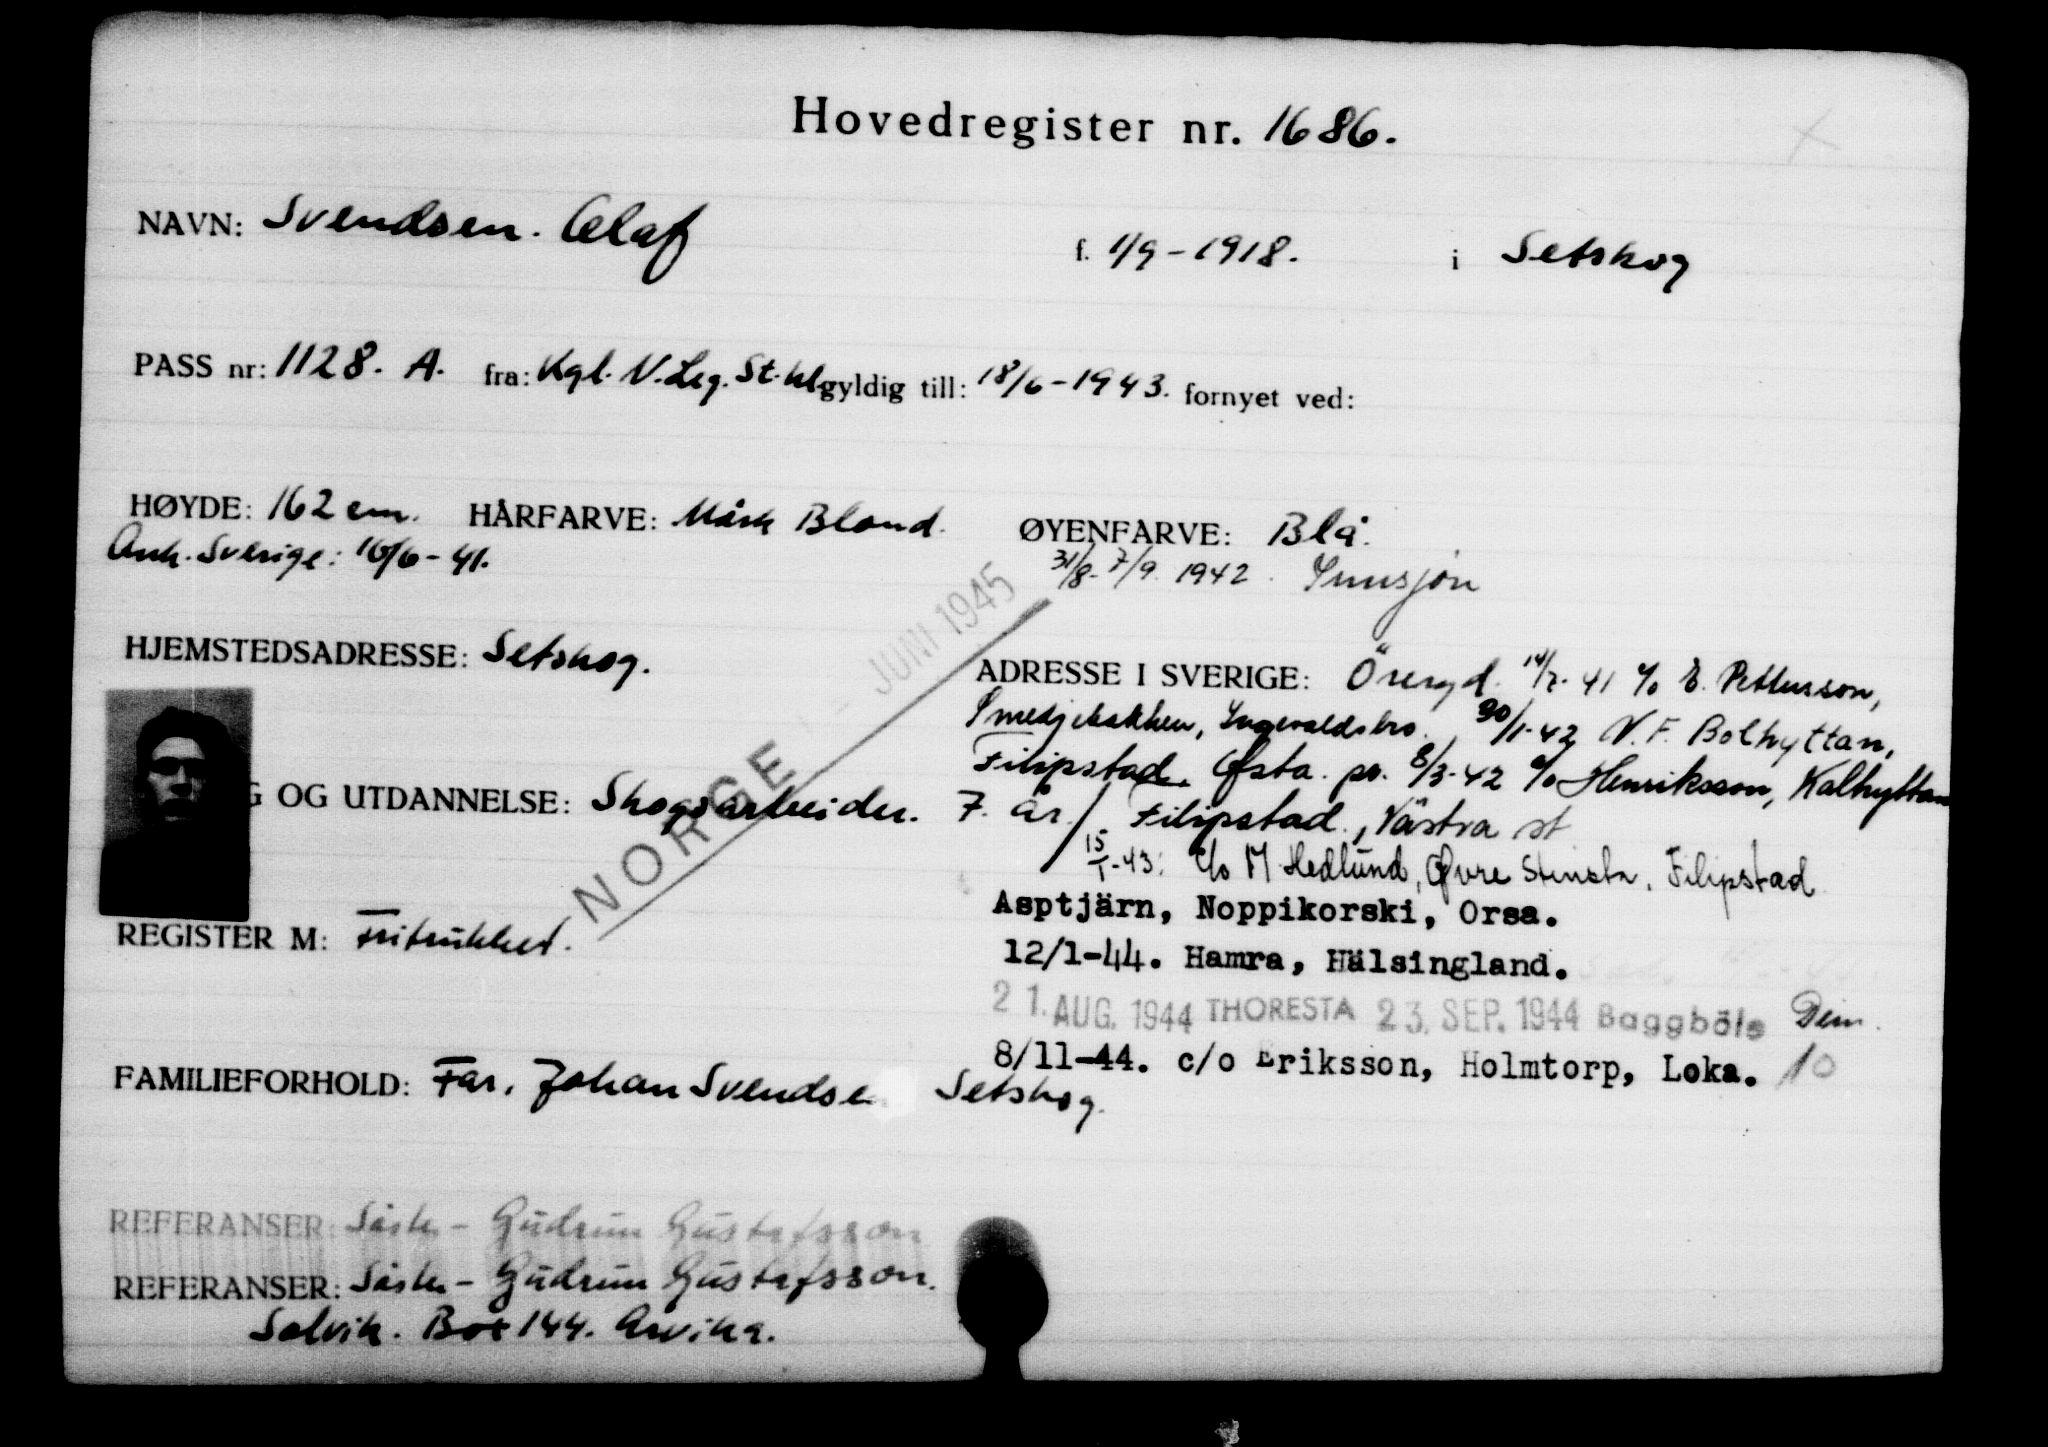 Hovedregister nr. 1686.
NAVN: Svendsen. Olaf f. 1/9-1918. i Setskog
PASS nr: 1128. A. fra: Kgl. N. Leg. St. hl gyldig till: 18/6-1943. fornyet ved:
HØYDE: 162 cm. HÅRFARVE: Mörk Blond. ØYENFARVE: Blå.
Ank. Sverige: 16/6-41.
31/8-7/9. 1942.
JUNI 1945
HJEMSTEDSADRESSE: Setskog.
ADRESSE I SVERIGE: Öreryd. 14/7-41 c/o E. Pettersson,
Smedjebakken, Ingevaldsbo. 30/1-42 N.F. Bolhyttan,
Filipstad. Ofsta. pr. 8/3-42 c/o Henriksson, Kalhyttan
G OG UTDANNELSE: Skogsarbeider. 7. år / Filipstad., Västra st
NORGE
15/1-43: c/o M Hedlund, Øvre Stensta, Filipstad
Asptjärn, Noppikorski, Orsa.
REGISTER M: Fritrukket.
12/1-44. Hamra, Hälsingland.
21. AUG. 1944 THORESTA 23. SEP. 1944 Baggböle Dim.
8/11-44. c/o Eriksson, Holmtorp, Loka. 10
FAMILIEFORHOLD: Far. Johan Svendsen Setskog.
REFERANSER: Söster - Gudrun Gustafsson
REFERANSER: Söster - Gudrun Gustafsson.
Solvik. Box 144. Arvika.